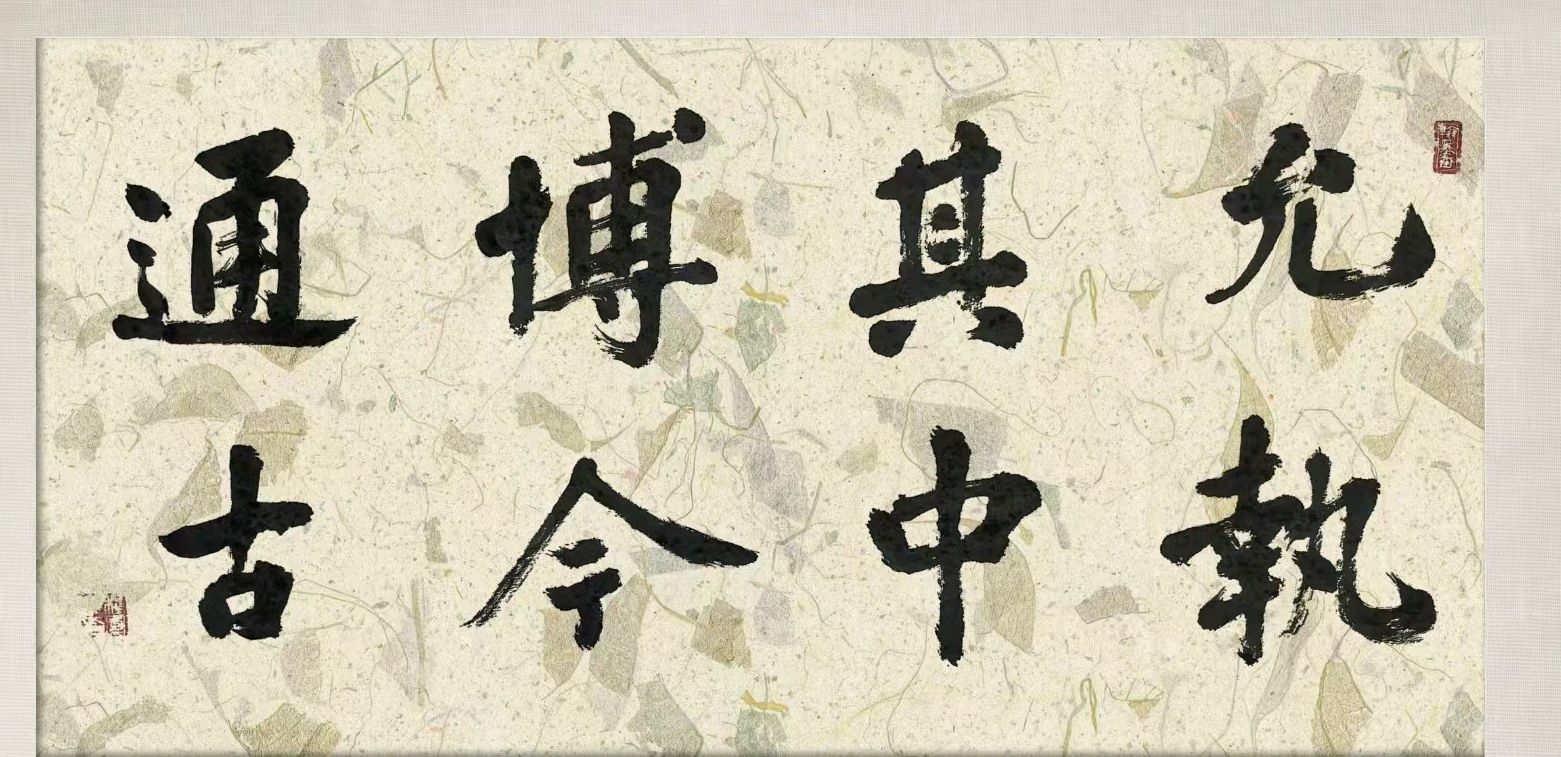 允執
其中
博今
通古